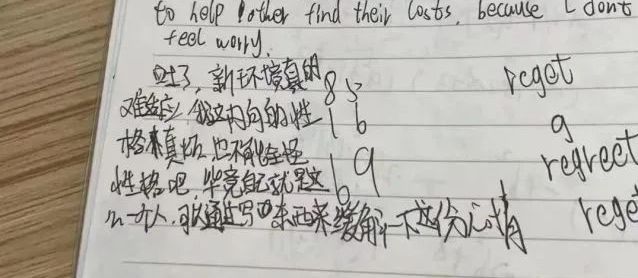 to help other find their losts, because I dont
feel worry.
吐了，新环境真的 85 reget
难适应，我这内向的性 16 g
格真 也不能全怪 69 regreet
性格吧，毕竟自己就是这 rege
么一个人，可以通过写 东西来缓解一下这份心情